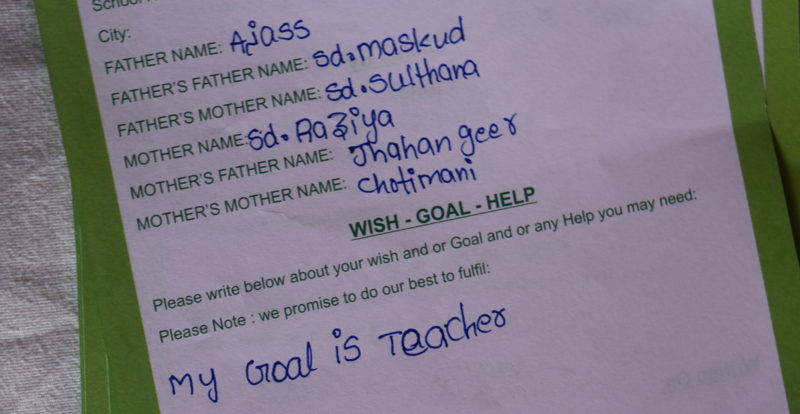 School
City:
FATHER NAME: Aciass
FATHER'S FATHER NAME: Sd.maskud
FATHER'S MOTHER NAME: Sd.Sulthana
MOTHER NAME: Sd. Raziya
MOTHER'S FATHER NAME: Jhahan geer
MOTHER'S MOTHER NAME: Chotimani
WISH - GOAL - HELP
Please write below about your wish and or Goal and or any Help you may need:
Please Note : we promise to do our best to fulfil:
My Goal is Teacher